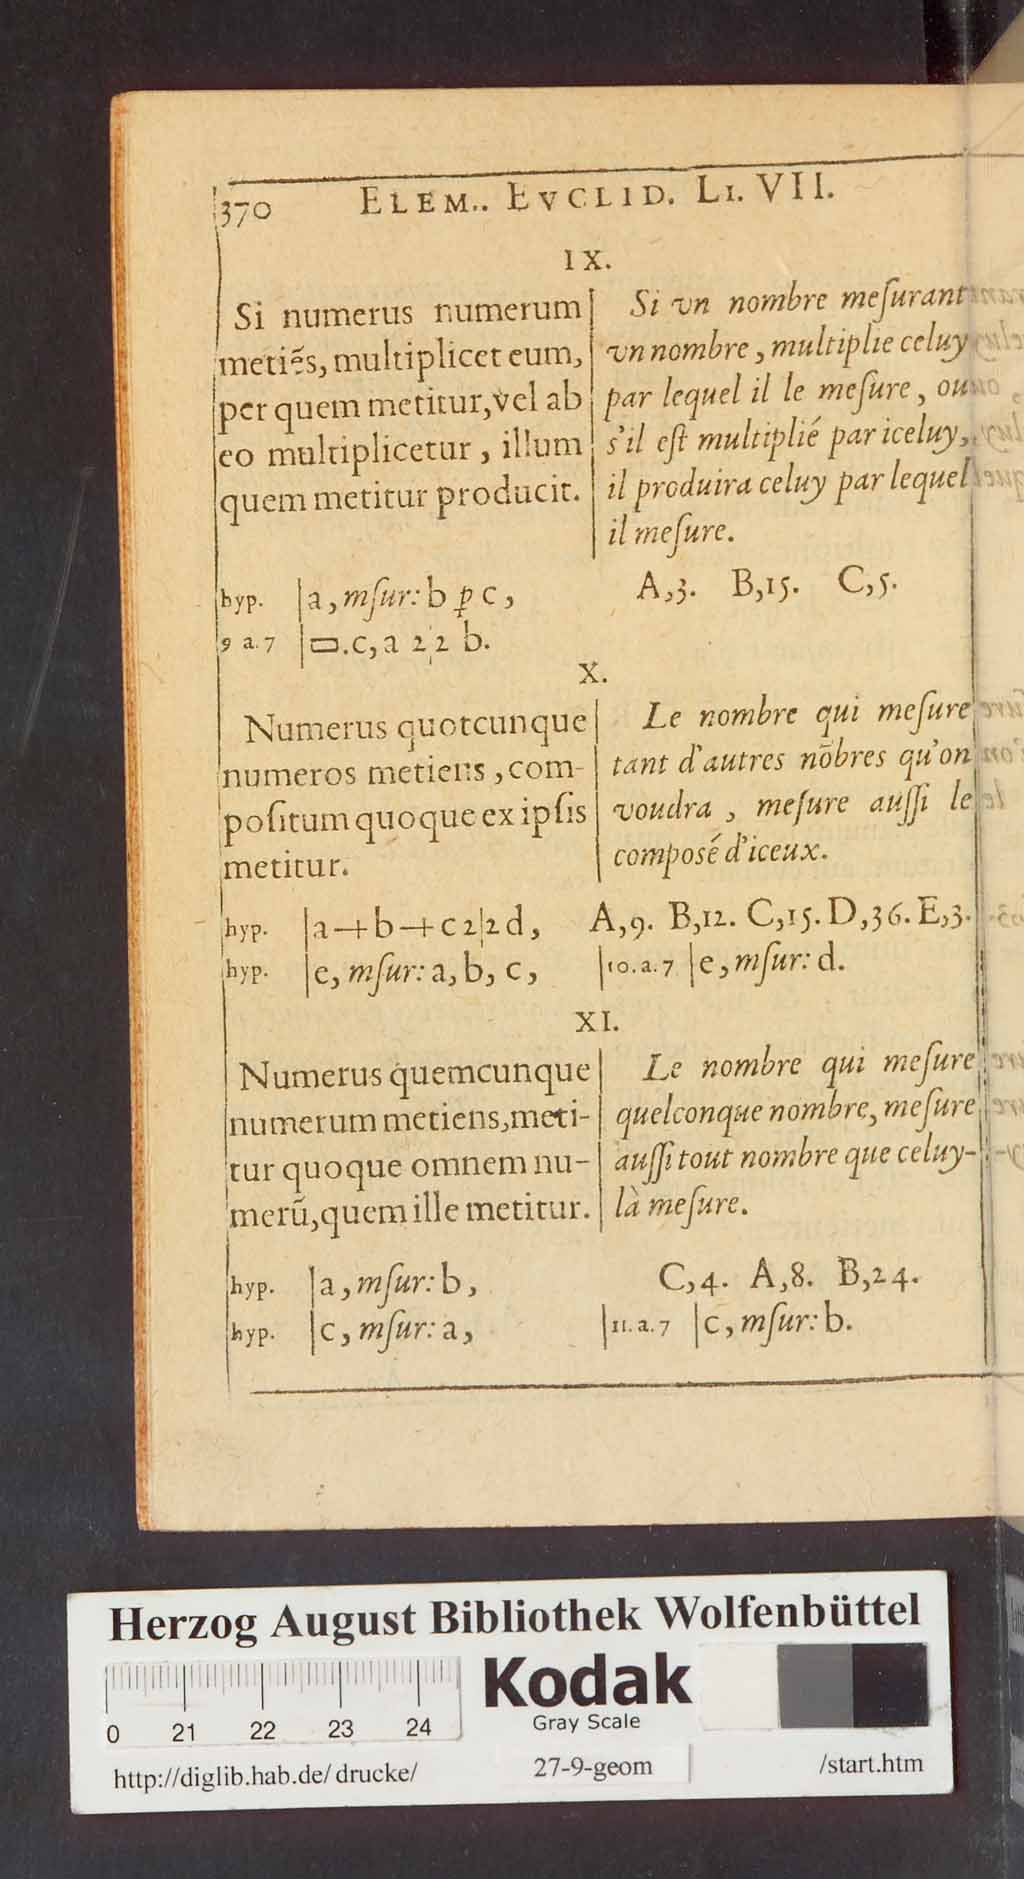 370 ELEM.. EVCLID. LI. VII.
IX.
Si numerus numerum
metiẽs, multiplicet eum,
per quem metitur, vel ab
eo multiplicetur, illum
quem metitur producit.
Si vn nombre meſurant
vn nombre, multiplie celuy
par lequel il le meſure, ou
s'il eſt multiplié par iceluy,
il produira celuy par lequel
il meſure.
hyp. |a, mſur: b ꝑ c,
A,3. B,15. C,5.
9 a. 7 |▭.c, a 2|2 b.
X.
Numerus quotcunque
numeros metiens, com-
poſitum quoque ex ipſis
metitur.
Le nombre qui meſure
tant d'autres nõbres qu'on
voudra, meſure auſſi le
composé d'iceux.
hyp. |a+b+c 2|2 d, A,9. B,12. C,15. D,36. E,3.
hyp. |e, mſur: a, b, c, |10.a.7 |e, mſur: d.
XI.
Numerus quemcunque
numerum metiens, meti-
tur quoque omnem nu-
merũ, quem ille metitur.
Le nombre qui meſure
quelconque nombre, meſure
auſſi tout nombre que celuy-
là meſure.
hyp. |a, mſur: b, C,4. A,8. B,24.
hyp. |c, mſur: a, |11.a.7 |c, mſur: b.
Herzog August Bibliothek Wolfenbüttel
Kodak
Gray Scale
0 21 22 23 24
http://diglib.hab.de/drucke/ 27-9-geom /start.htm